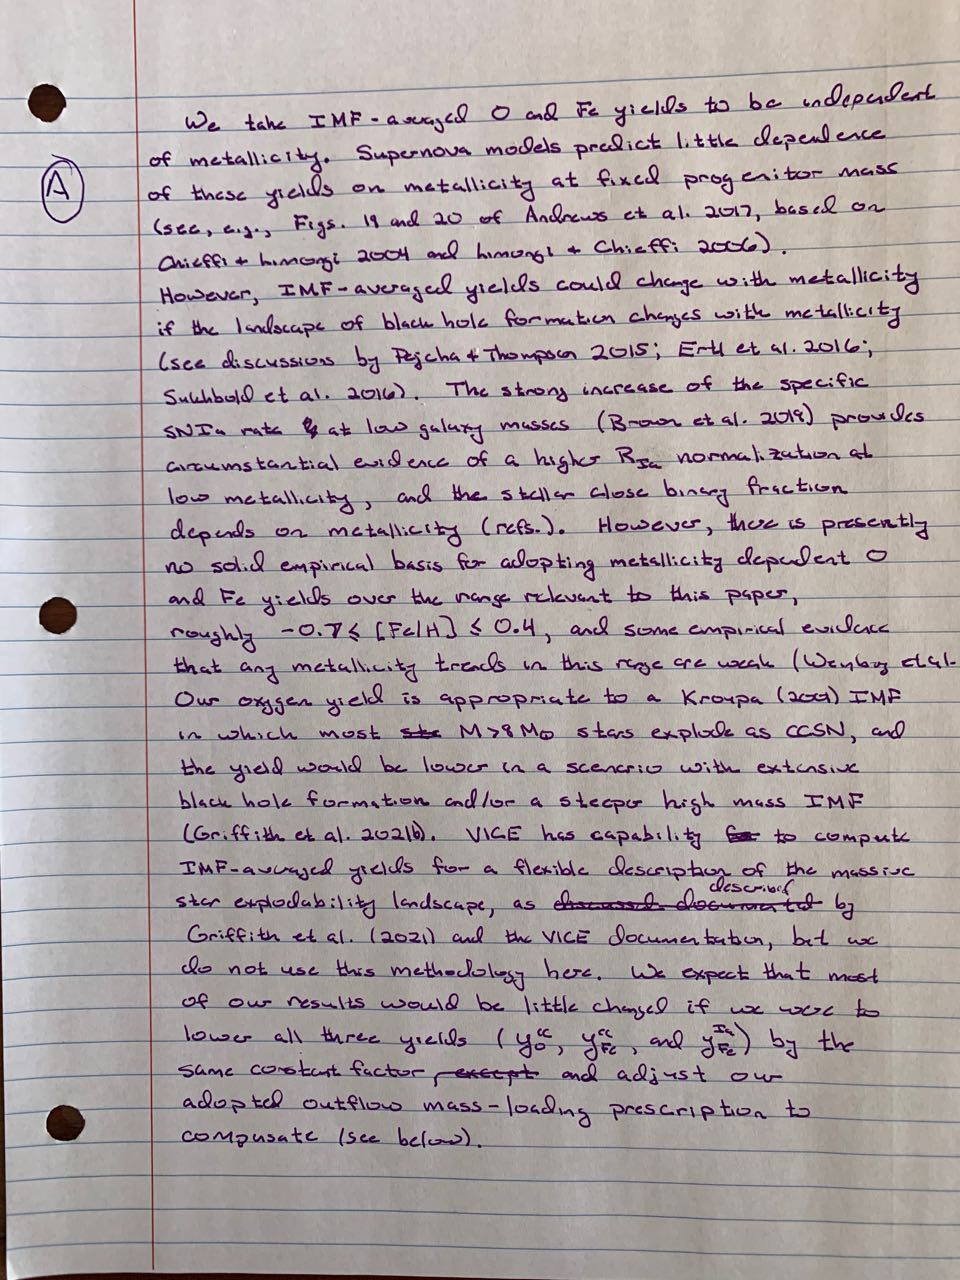 We take IMF-averaged O and Fe yields to be independent
of metallicity. Supernova models predict little dependence
A
of these yields on metallicity at fixed progenitor mass
(see, e.g., Figs. 19 and 20 of Andrews et al. 2017, based on
Chieffi + Limongi 2004 and Limongi + Chieffi 2006).
However, IMF-averaged yields could change with metallicity
if the landscape of black hole formation changes with metallicity
(see discussions by Pejcha + Thompson 2015; Ertl et al. 2016;
Sukhbold et al. 2016). The strong increase of the specific
SNIa rate at low galaxy masses (Brown et al. 2019) provides
circumstantial evidence of a higher R_Ia normalization at
low metallicity, and the stellar close binary fraction
depends on metallicity (refs.). However, there is presently
no solid empirical basis for adopting metallicity dependent O
and Fe yields over the range relevant to this paper,
roughly -0.7 ≤ [Fe/H] ≤ 0.4, and some empirical evidence
that any metallicity trends in this range are weak (Weinberg et al.
Our oxygen yield is appropriate to a Kroupa (2001) IMF
in which most M>8 M⊙ stars explode as CCSN, and
the yield would be lower in a scenario with extensive
black hole formation and/or a steeper high mass IMF
(Griffith et al. 2021b). VICE has capability to compute
IMF-averaged yields for a flexible description of the massive
star explodability landscape, as described by
Griffith et al. (2021) and the VICE documentation, but we
do not use this methodology here. We expect that most
of our results would be little changed if we were to
lower all three yields (y_O^cc, y_Fe^cc, and y_Fe^Ia) by the
same constant factor, and adjust our
adopted outflow mass-loading prescription to
compensate (see below).